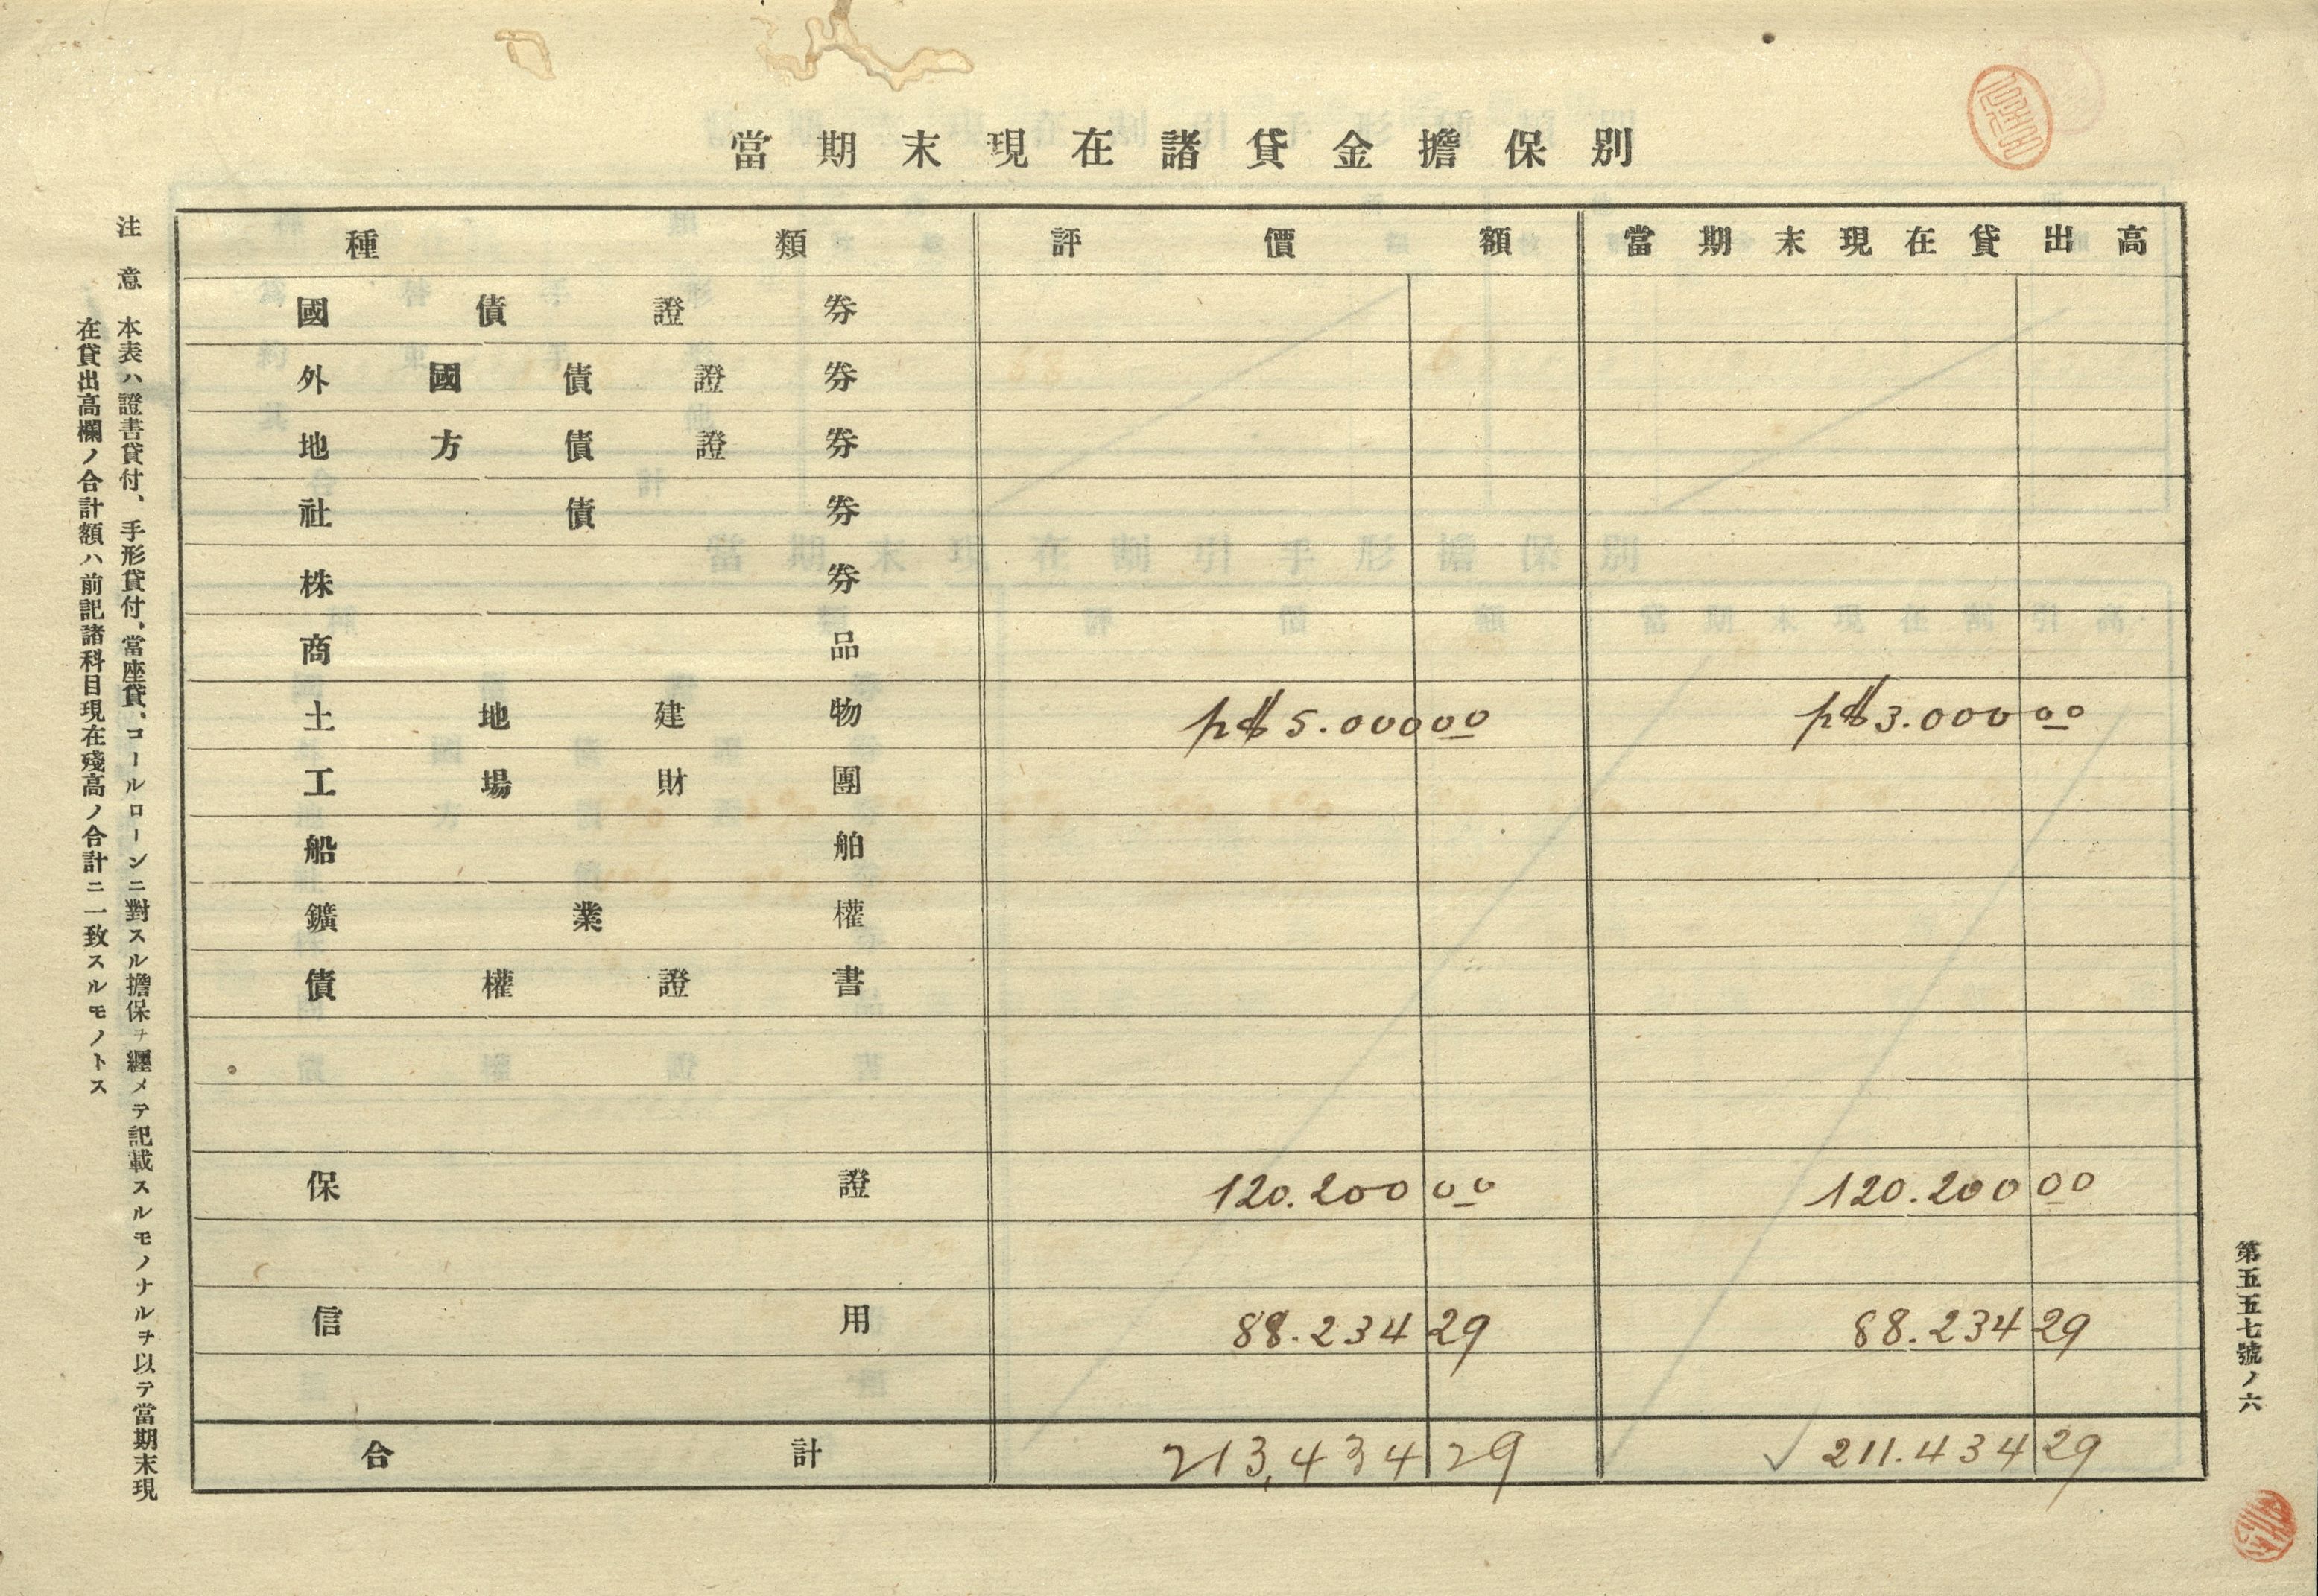 當期末現在諸貸金擔保別
種類 評價額 當期末現在貸出高
國債證券
外國債證券
地方債證券
社債券
株券
商品
土地建物 5.000 00 3.000 00
工場財團
船舶
鑛業權
債權證書
保證 120.200 00 120.200 00
信用 88.234 29 88.234 29
合計 213,434 29 √ 211.434 29
注意 本表ハ證書貸付、手形貸付、當座貸、コールローンニ對スル擔保ヲ纒メテ記載スルモノナルヲ以テ當期末現
在貸出高欄ノ合計額ハ前記諸科目現在殘高ノ合計ニ一致スルモノトス
第五五七號ノ六